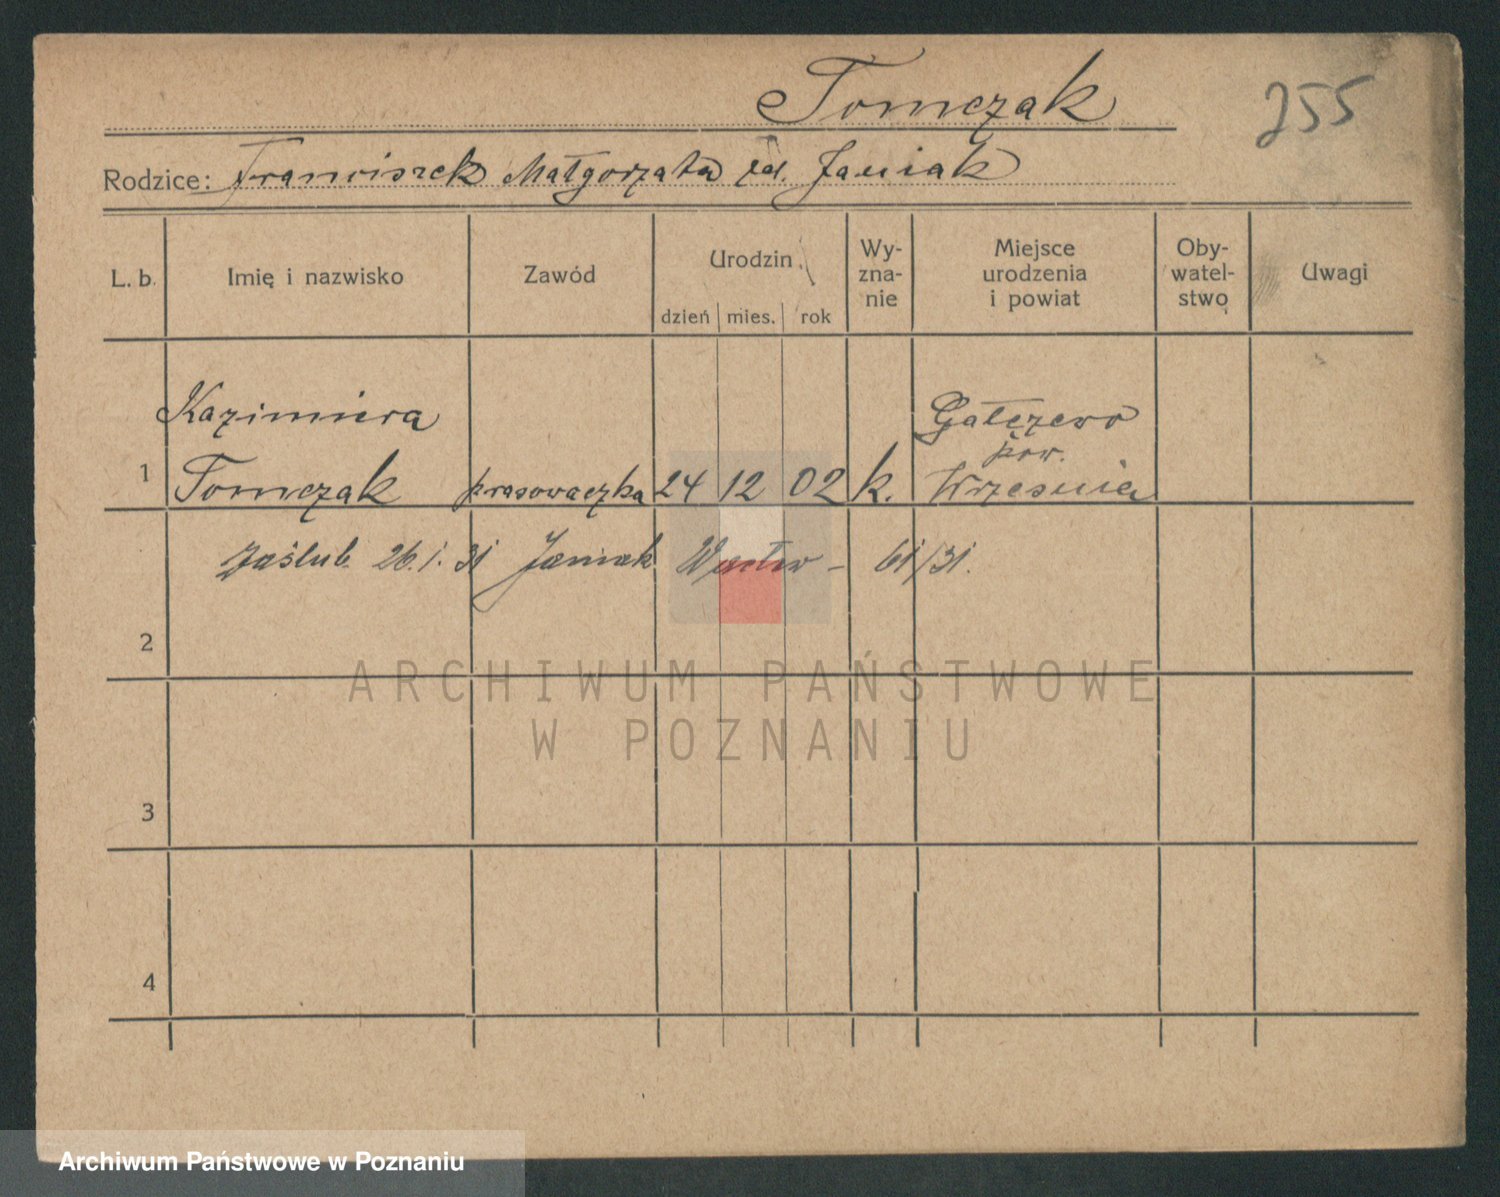 Tomczak
255
Rodzice: Franciszek Małgorzata zd. Janiak
L. b.
Imię i nazwisko
Zawód
Urodzin
dzień mies. rok
Wy-
zna-
nie
Miejsce
urodzenia
i powiat
Oby-
watel-
stwo
Uwagi
Kazimiera
Gałęzewo
pow.
1 Tomczak prasowaczka 24 12 02 k. Września
zaślub. 26.1.31 Janiak Wacław - 61/31.
2
ARCHIWUM PAŃSTWOWE
W POZNANIU
3
4
Archiwum Państwowe w Poznaniu